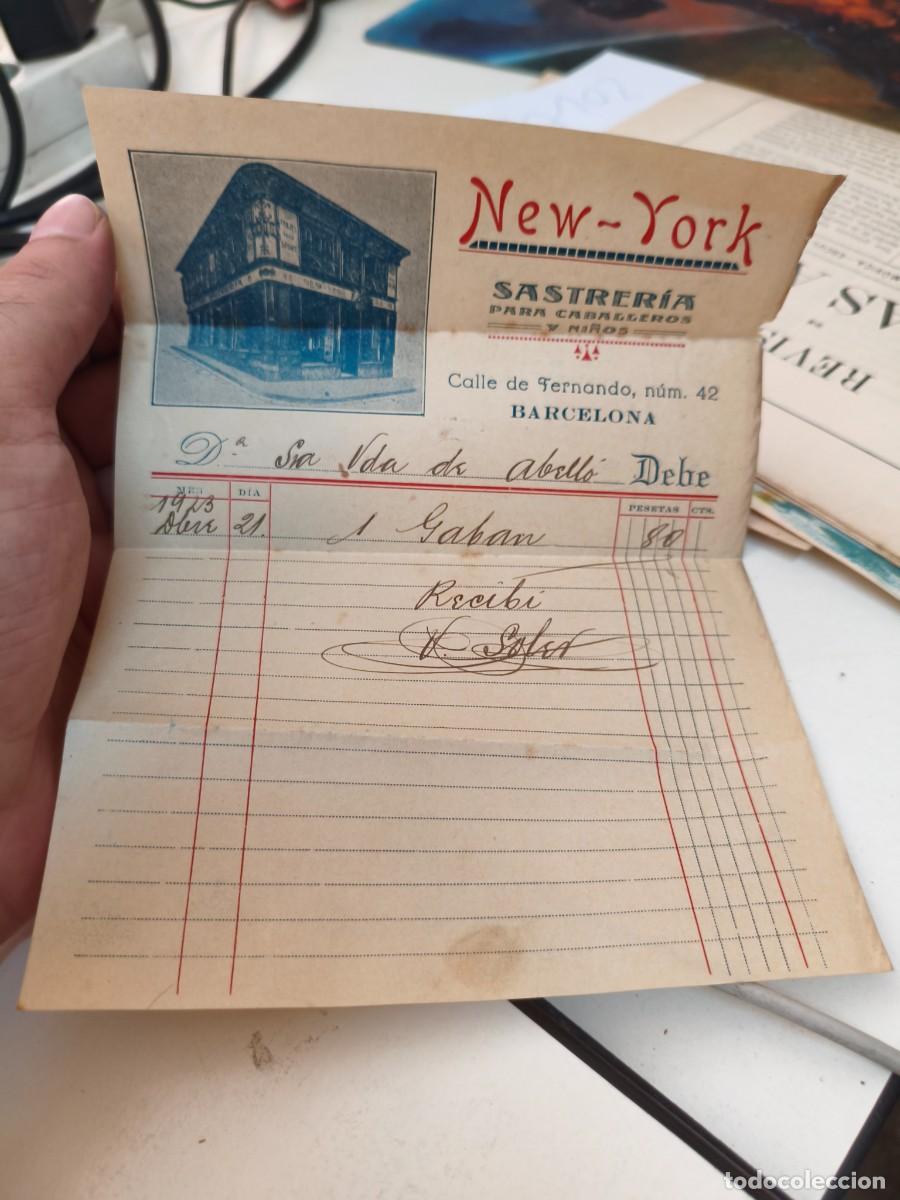 New-York
SASTRERÍA
PARA CABALLEROS
Y NIÑOS
Calle de Fernando, núm. 42
BARCELONA
D.ª Sra Vda de Abelló Debe
MES DÍA PESETAS CTS.
1923
Dbre 21. 1 Gaban 80
Recibí
V. Soler
REVIS
AS
todocoleccion